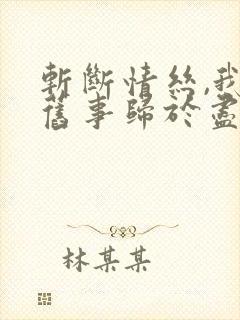 斬斷情絲,我
舊事歸於盡
林某某